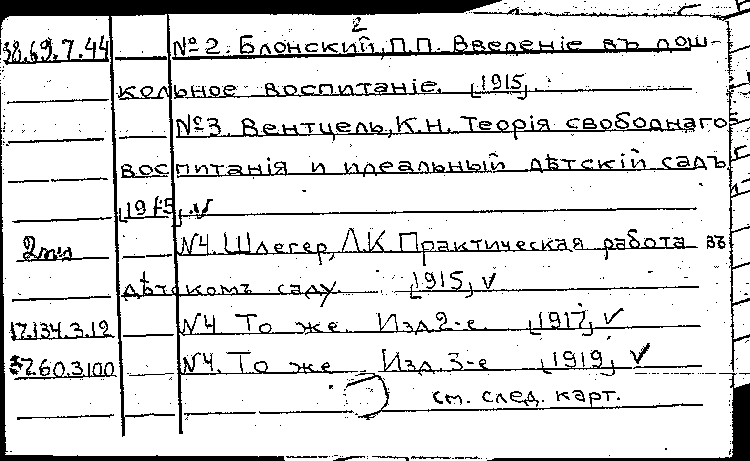 2
38.69.7.44 №2. Блонский, П.П. Введеніе въ дош-
кольное воспитаніе. [1915].
№3. Вентцель, К.Н. Теорія свободнаго
воспитанія и идеальный дѣтскій садъ
[1915]. v
№4. Шлегер, Л.К. Практическая работа въ
дѣтскомъ саду. [1915] v
17.134.3.12 №4 То же. Изд. 2-е. [1917] v
37.60.3100 №4. То же Изд. 3-е [1919] v
см. след. карт.